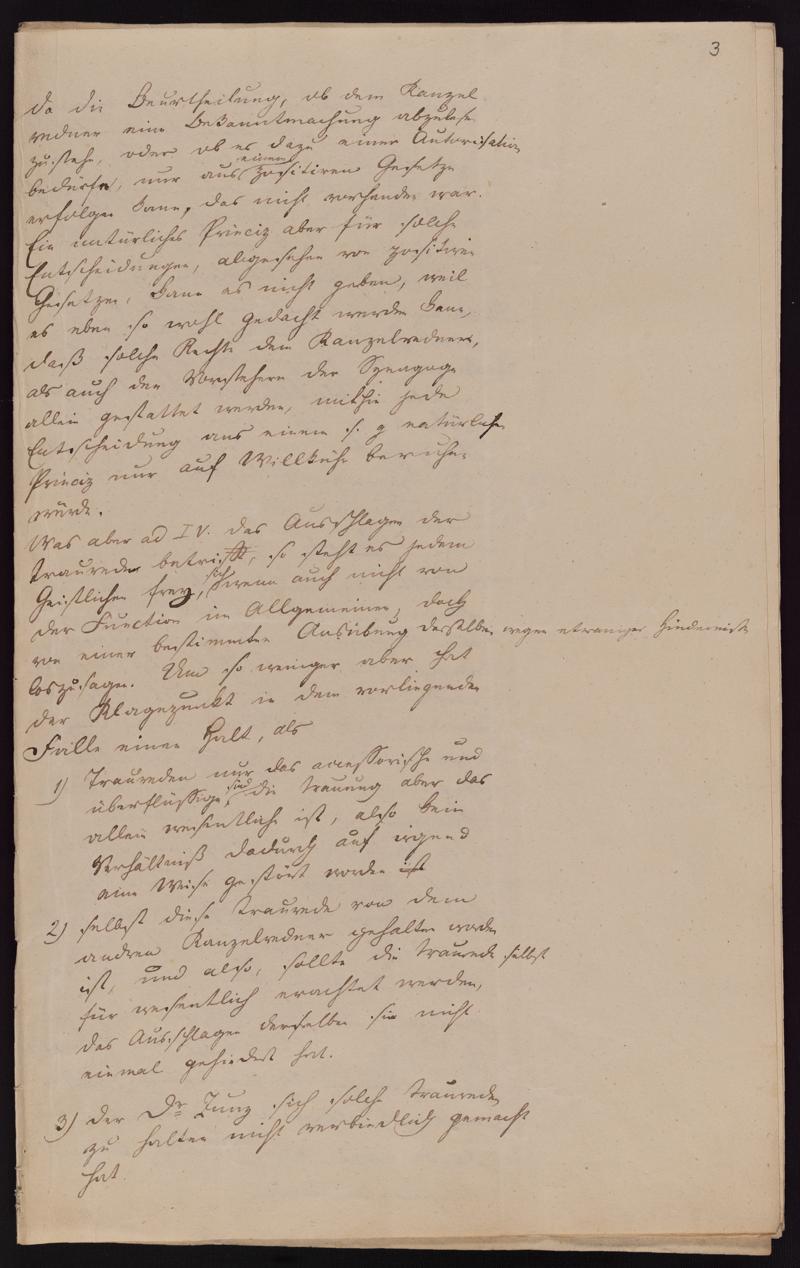 3
da die Beurtheilung, ob dem Kanzel
redner eine Bekanntmachung abzulesen
zustehe, oder ob es dazu einer Autorisation
bedürfe, nur aus einem positiven Gesetze
erfolgen kann, das nicht vorhanden war.
Ein natürliches Princip aber für solche
Entscheidungen, abgesehen von positiven
Gesetzen, kann es nicht geben, weil
es eben so wohl gedacht werden kann,
daß solche Rechte dem Kanzelredner,
als auch den Vorstehern der Synagoge
allein gestattet werden, mithin jede
Entscheidung aus einem s. g natürlichen
Princip nur auf Willkühr beruhen
würde.
Was aber ad IV. das Ausschlagen der
Traureden betrifft, so steht es jedem
Geistlichen frey, sich wenn auch nicht von
der Function im Allgemeinen, doch
von einer bestimmten Ausübung derselben wegen etwaniger Hindernisse
loszusagen. Um so weniger aber hat
der Klagepunkt in dem vorliegenden
Falle einen Halt, als
1) Traureden nur das accessorische und
überflüssige sind, die Trauung aber das
allein wesentliche ist, also kein
Verhältniß dadurch auf irgend
eine Weise gestört worden ist
2) selbst diese Traurede von dem
andren Kanzelredner gehalten worden
ist, und also, sollte die Traurede selbst
für wesentlich erachtet werden,
das Ausschlagen derselben sie nicht
einmal gehindert hat.
3) der Dr Zunz sich solche Traureden
zu halten nicht verbindlich gemacht
hat